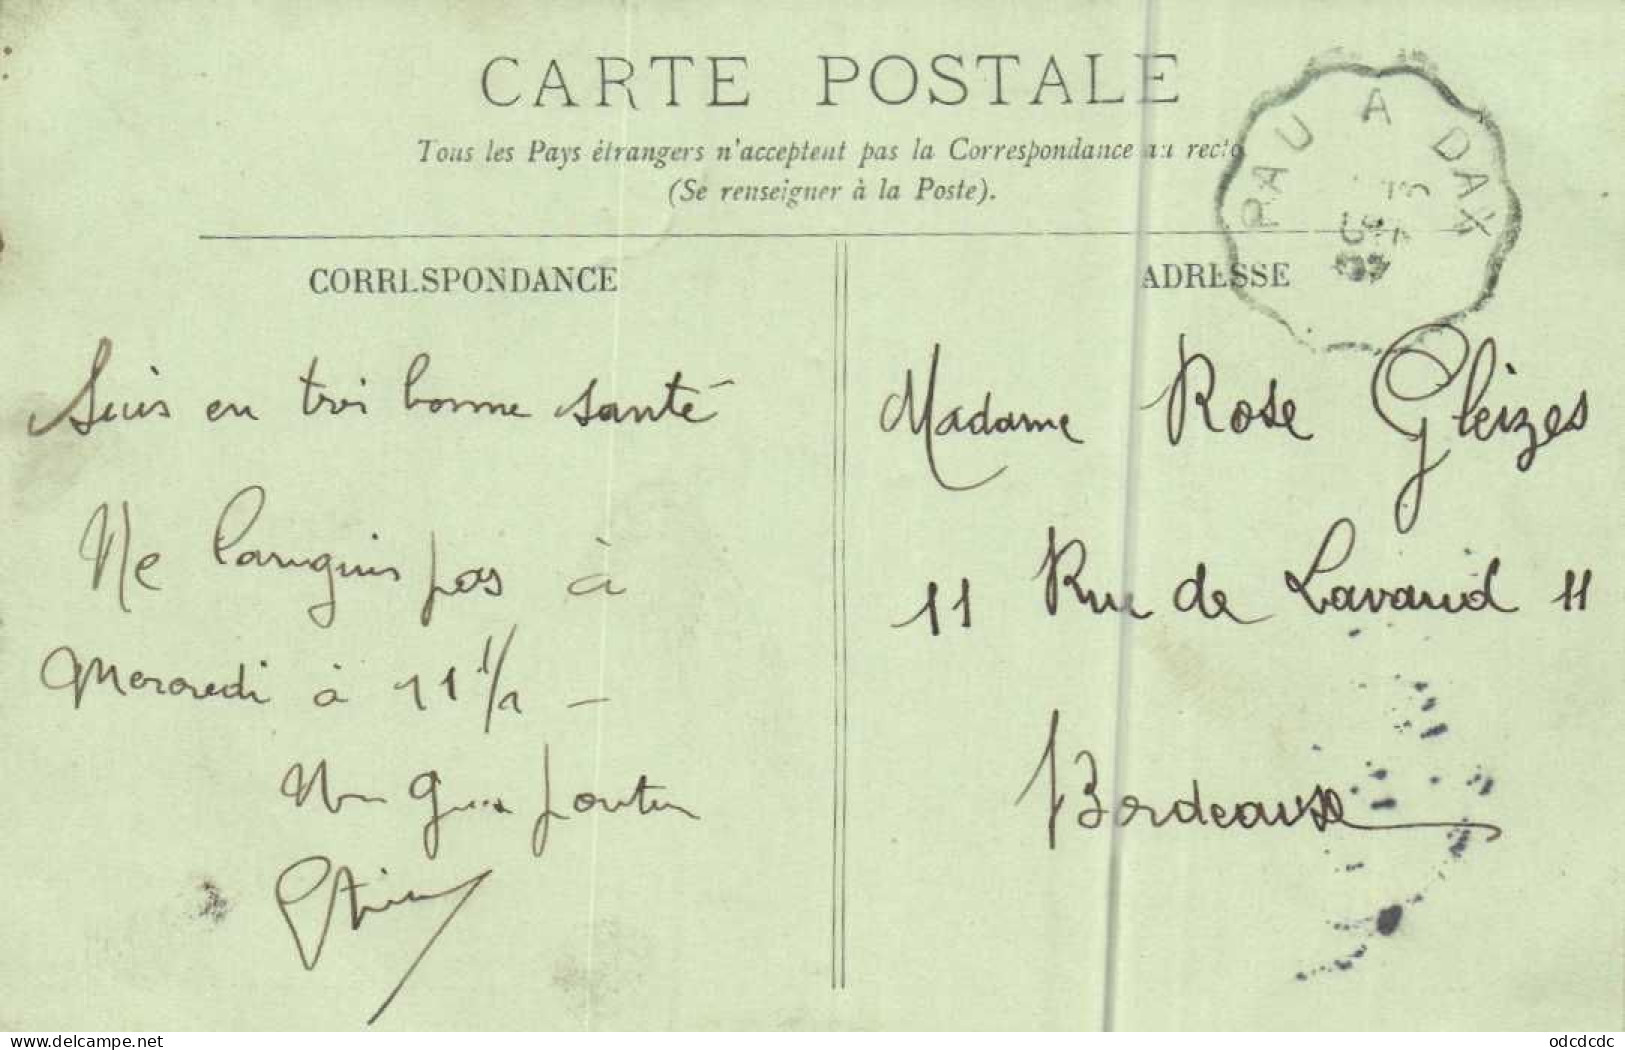 CARTE POSTALE
Tous les Pays étrangers n'acceptent pas la Correspondance au recto
(Se renseigner à la Poste).
PAU A DAX
CORRESPONDANCE
Suis en très bonne santé
Ne languis pas à
Mercredi à 11 1/2 -
ADRESSE
Madame Rose Gleizes
11 Rue de Lavaud 11
Bordeaux
delcampe.net
odcdcdc